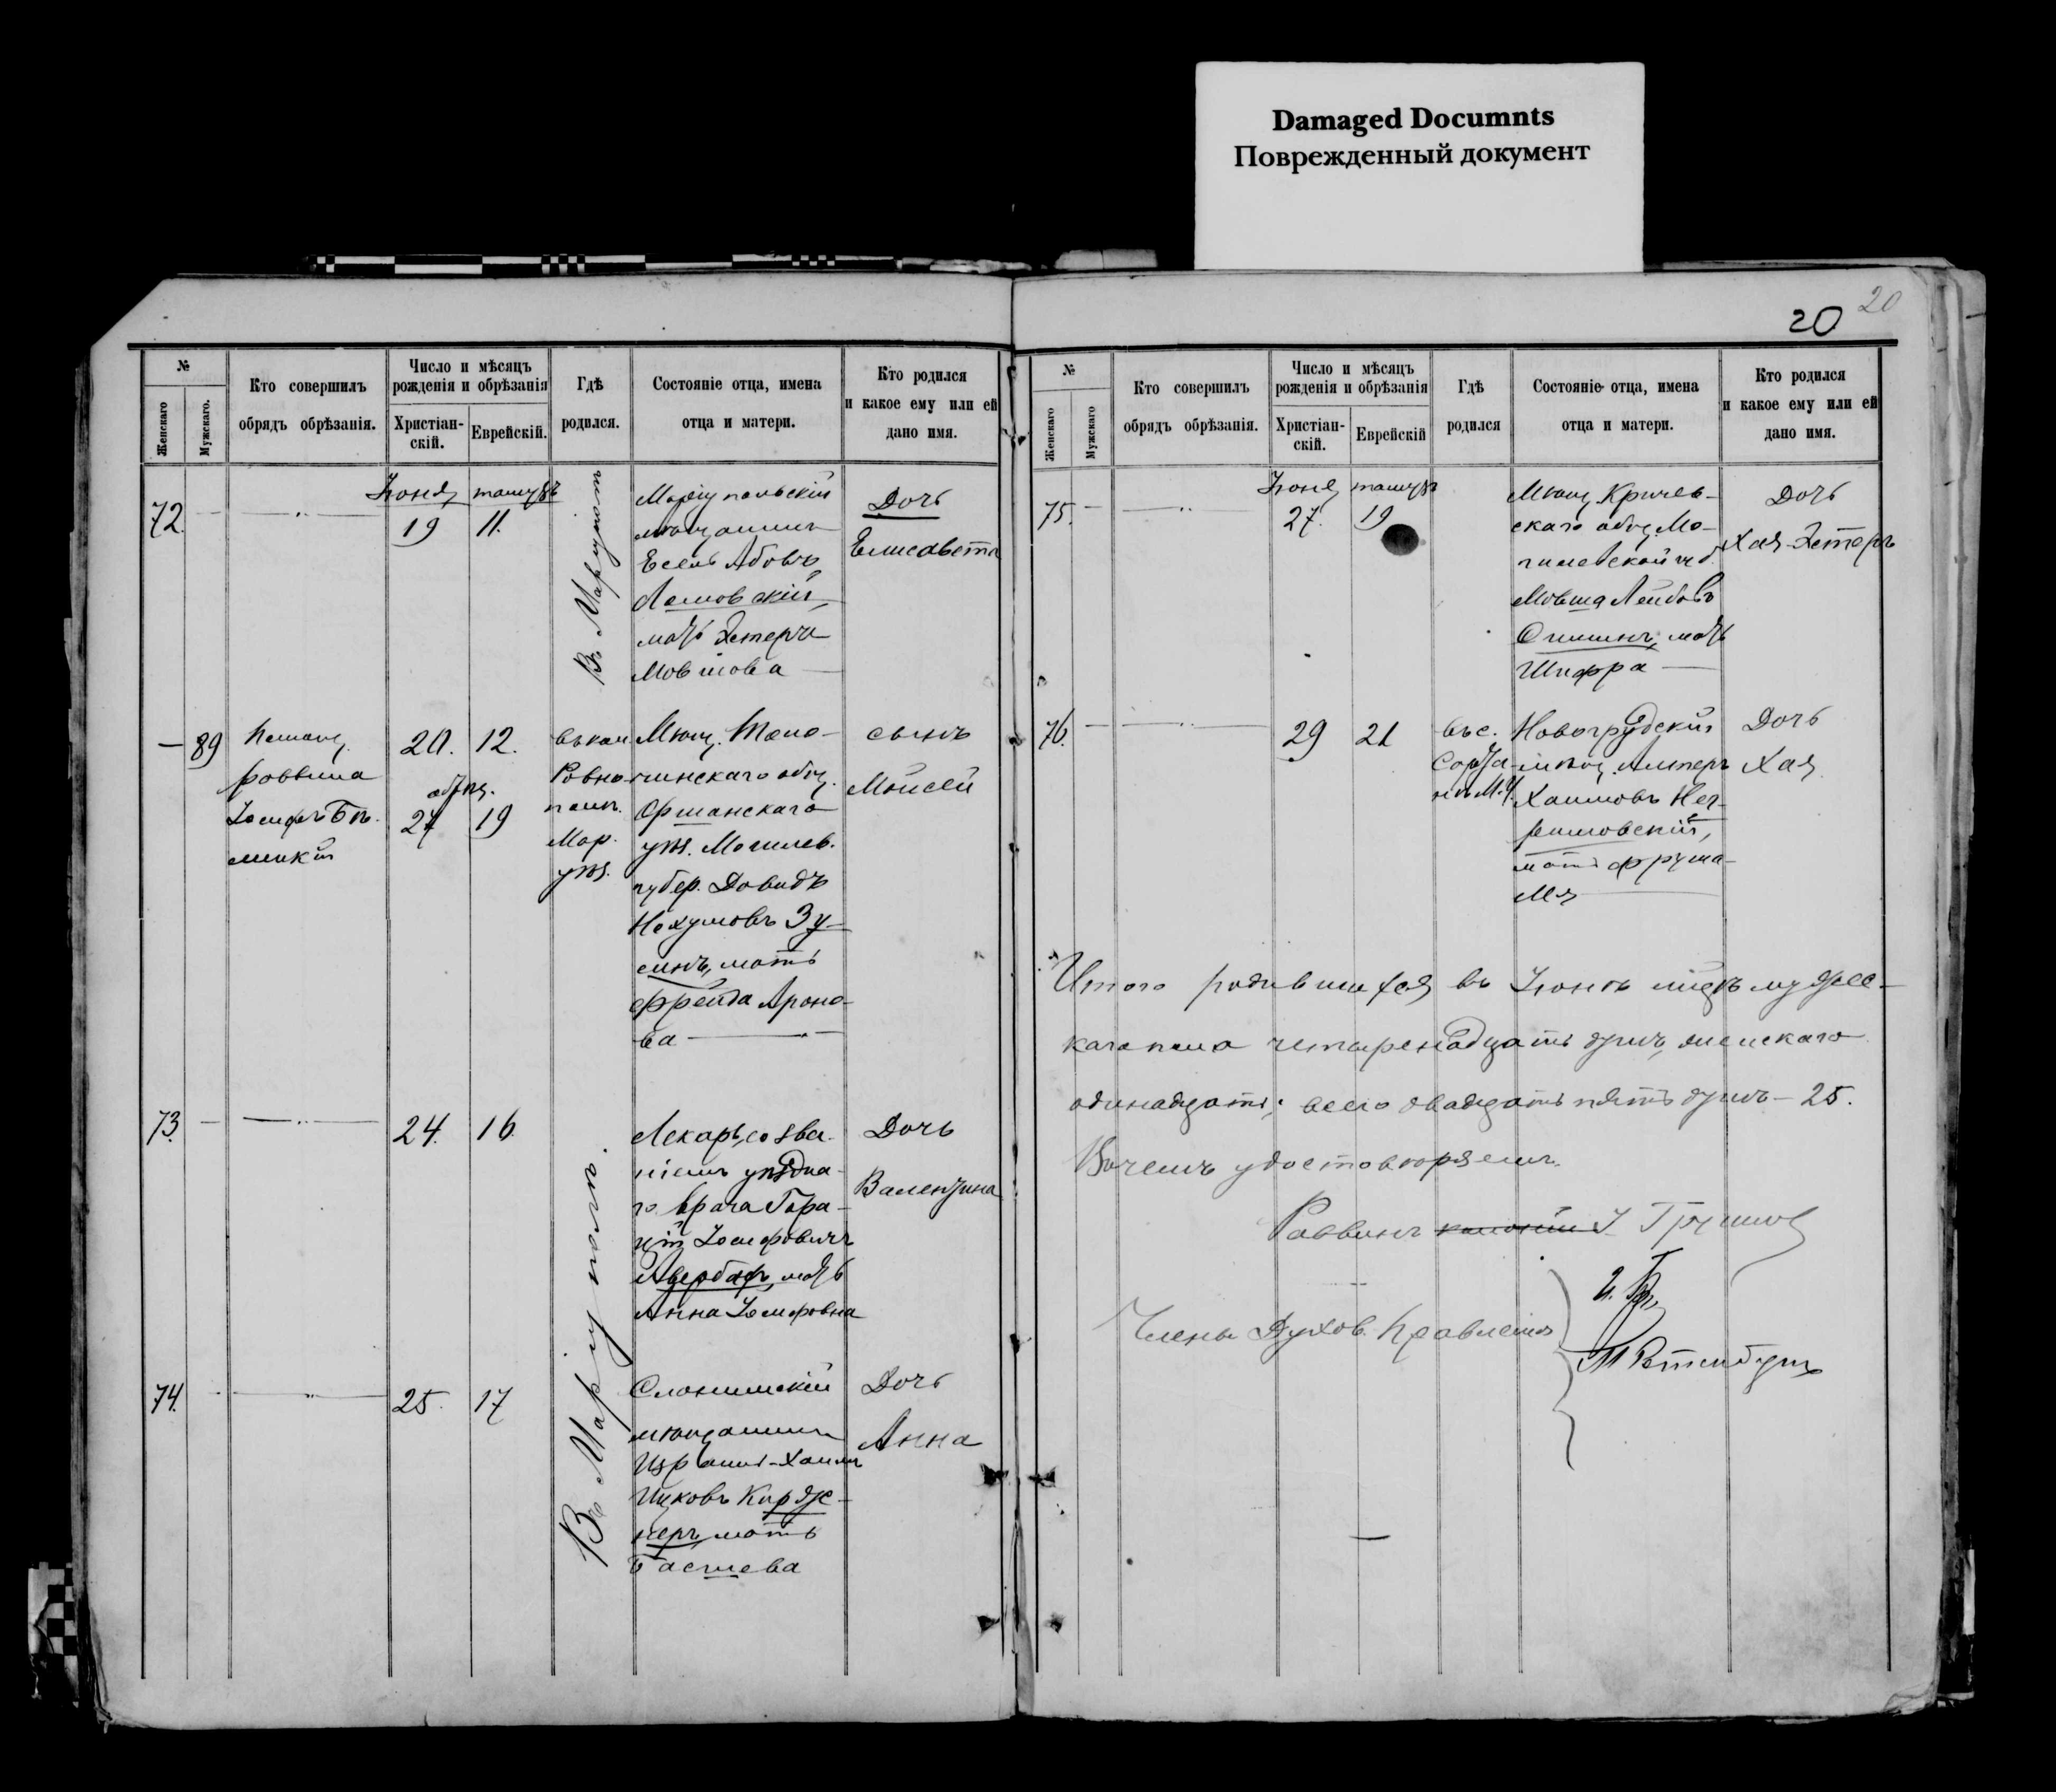 Damaged Documnts
Поврежденный документ
20 20
№
Женскаго
Мужскаго.
Кто совершилъ
обрядъ обрѣзанія.
Число и мѣсяцъ
рожденія и обрѣзанія
Христіан-
скій.
Еврейскій.
Гдѣ
родился.
Состояніе отца, имена
отца и матери.
Кто родился
и какое ему или ей
дано имя.
72.
Іюня
19
тамузъ
11.
Въ Маріуполѣ
Маріупольскій
мѣщанинъ
Есель Абовъ
мать Эстеръ
Мовшова
Дочь
Елисавета
89
Помощ.
раввина
Іосифъ
20. 12.
обрѣз.
27 19
въ кол.
Ровно-
поль.
Мар.
уѣз.
Мѣщ. Толо-
чинскаго общ.
Оршанскаго
уѣз. Могилев.
губер. Довидъ
Нохумовъ Зу-
синъ, мать
Фрейда Ароно-
ва
сынъ
Мойсей
73.
24. 16.
Лекарь, со зва-
ніемъ уѣздна-
го врача Гора-
цій Іосифовичъ
Авербахъ, мать
Анна Іосифовна
Дочь
Валентина
74.
25. 17
Въ Маріуполѣ.
Слонимскій
мѣщанинъ
Израиль-Хаимъ
Ицковъ Кирже-
неръ, мать
Басшева
Дочь
Анна
№
Женскаго
Мужскаго
Кто совершилъ
обрядъ обрѣзанія.
Число и мѣсяцъ
рожденія и обрѣзанія
Христіан-
скій.
Еврейскій
Гдѣ
родился
Состояніе отца, имена
отца и матери.
Кто родился
и какое ему или ей
дано имя.
75.
Іюня
27.
тамузъ
19
Мѣщ. Кричев-
скаго общ. Мо-
гилевской губ.
Мовша Лейбовъ
мать
Шифра
Дочь
Хая-Эстеръ
76.
29 21
въ с.
М. У.
Новогрудскій
мѣщ. Алтеръ
Хаимовъ
мать Фрума-
Мея
Дочь
Хая
Итого родившихся въ Іюнѣ м-цѣ мужес-
каго пола четырнадцать душъ, женскаго
одинадцать; всего двадцать пять душъ – 25.
Въ чемъ удостовѣряемъ.
Раввинъ
Члены Духов. Правленія